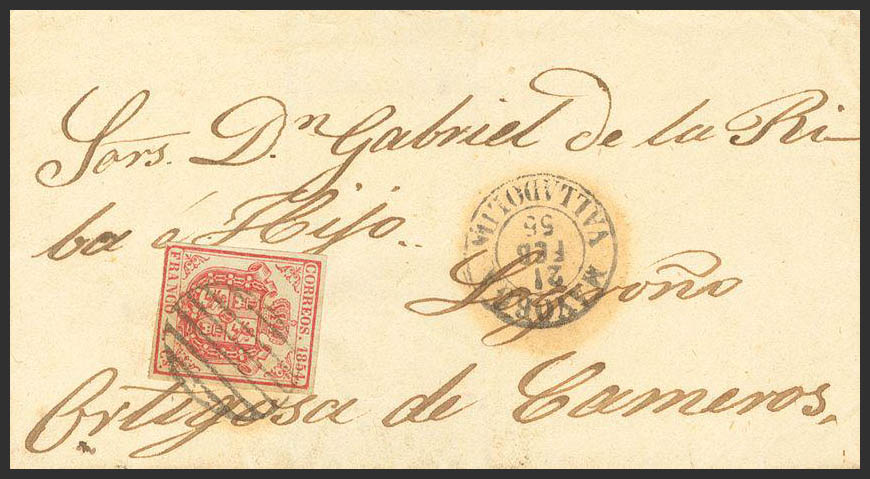 Sors. Dn Gabriel de la Ri-
ba é Hijo..
Logroño
Ortigosa de Cameros.
CORREOS. 1854.
FRANCO
VALLADOLID
21
FEB
55